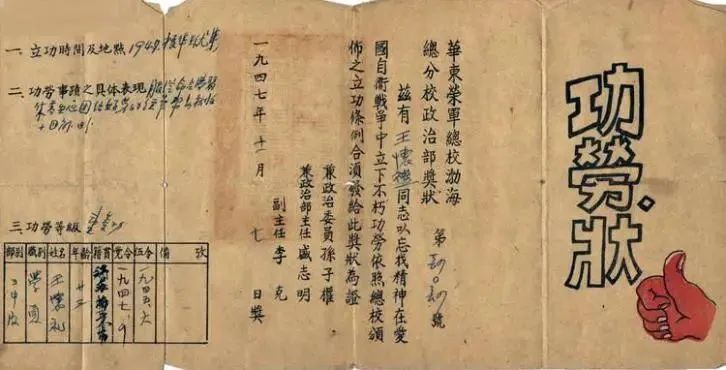 功勞狀
華東榮軍總校渤海
總分校政治部獎狀
第 號
茲有王懷禮同志以忘我精神在愛
國自衛戰爭中立下不朽功勞依照總校頒
佈之立功條例合須發給此獎狀為證
兼政治委員孫子權
兼政治部主任盛志明
副主任李克
一九四七年十一月七日獎
一、立功時間及地點 1947.
二、功勞事蹟之具体表現
三、功勞等級
部別 職別 姓名 年齡 籍貫 党令 伍令 備攷
學員 王懷礼 廿三 一九四七、九 一九四五、六